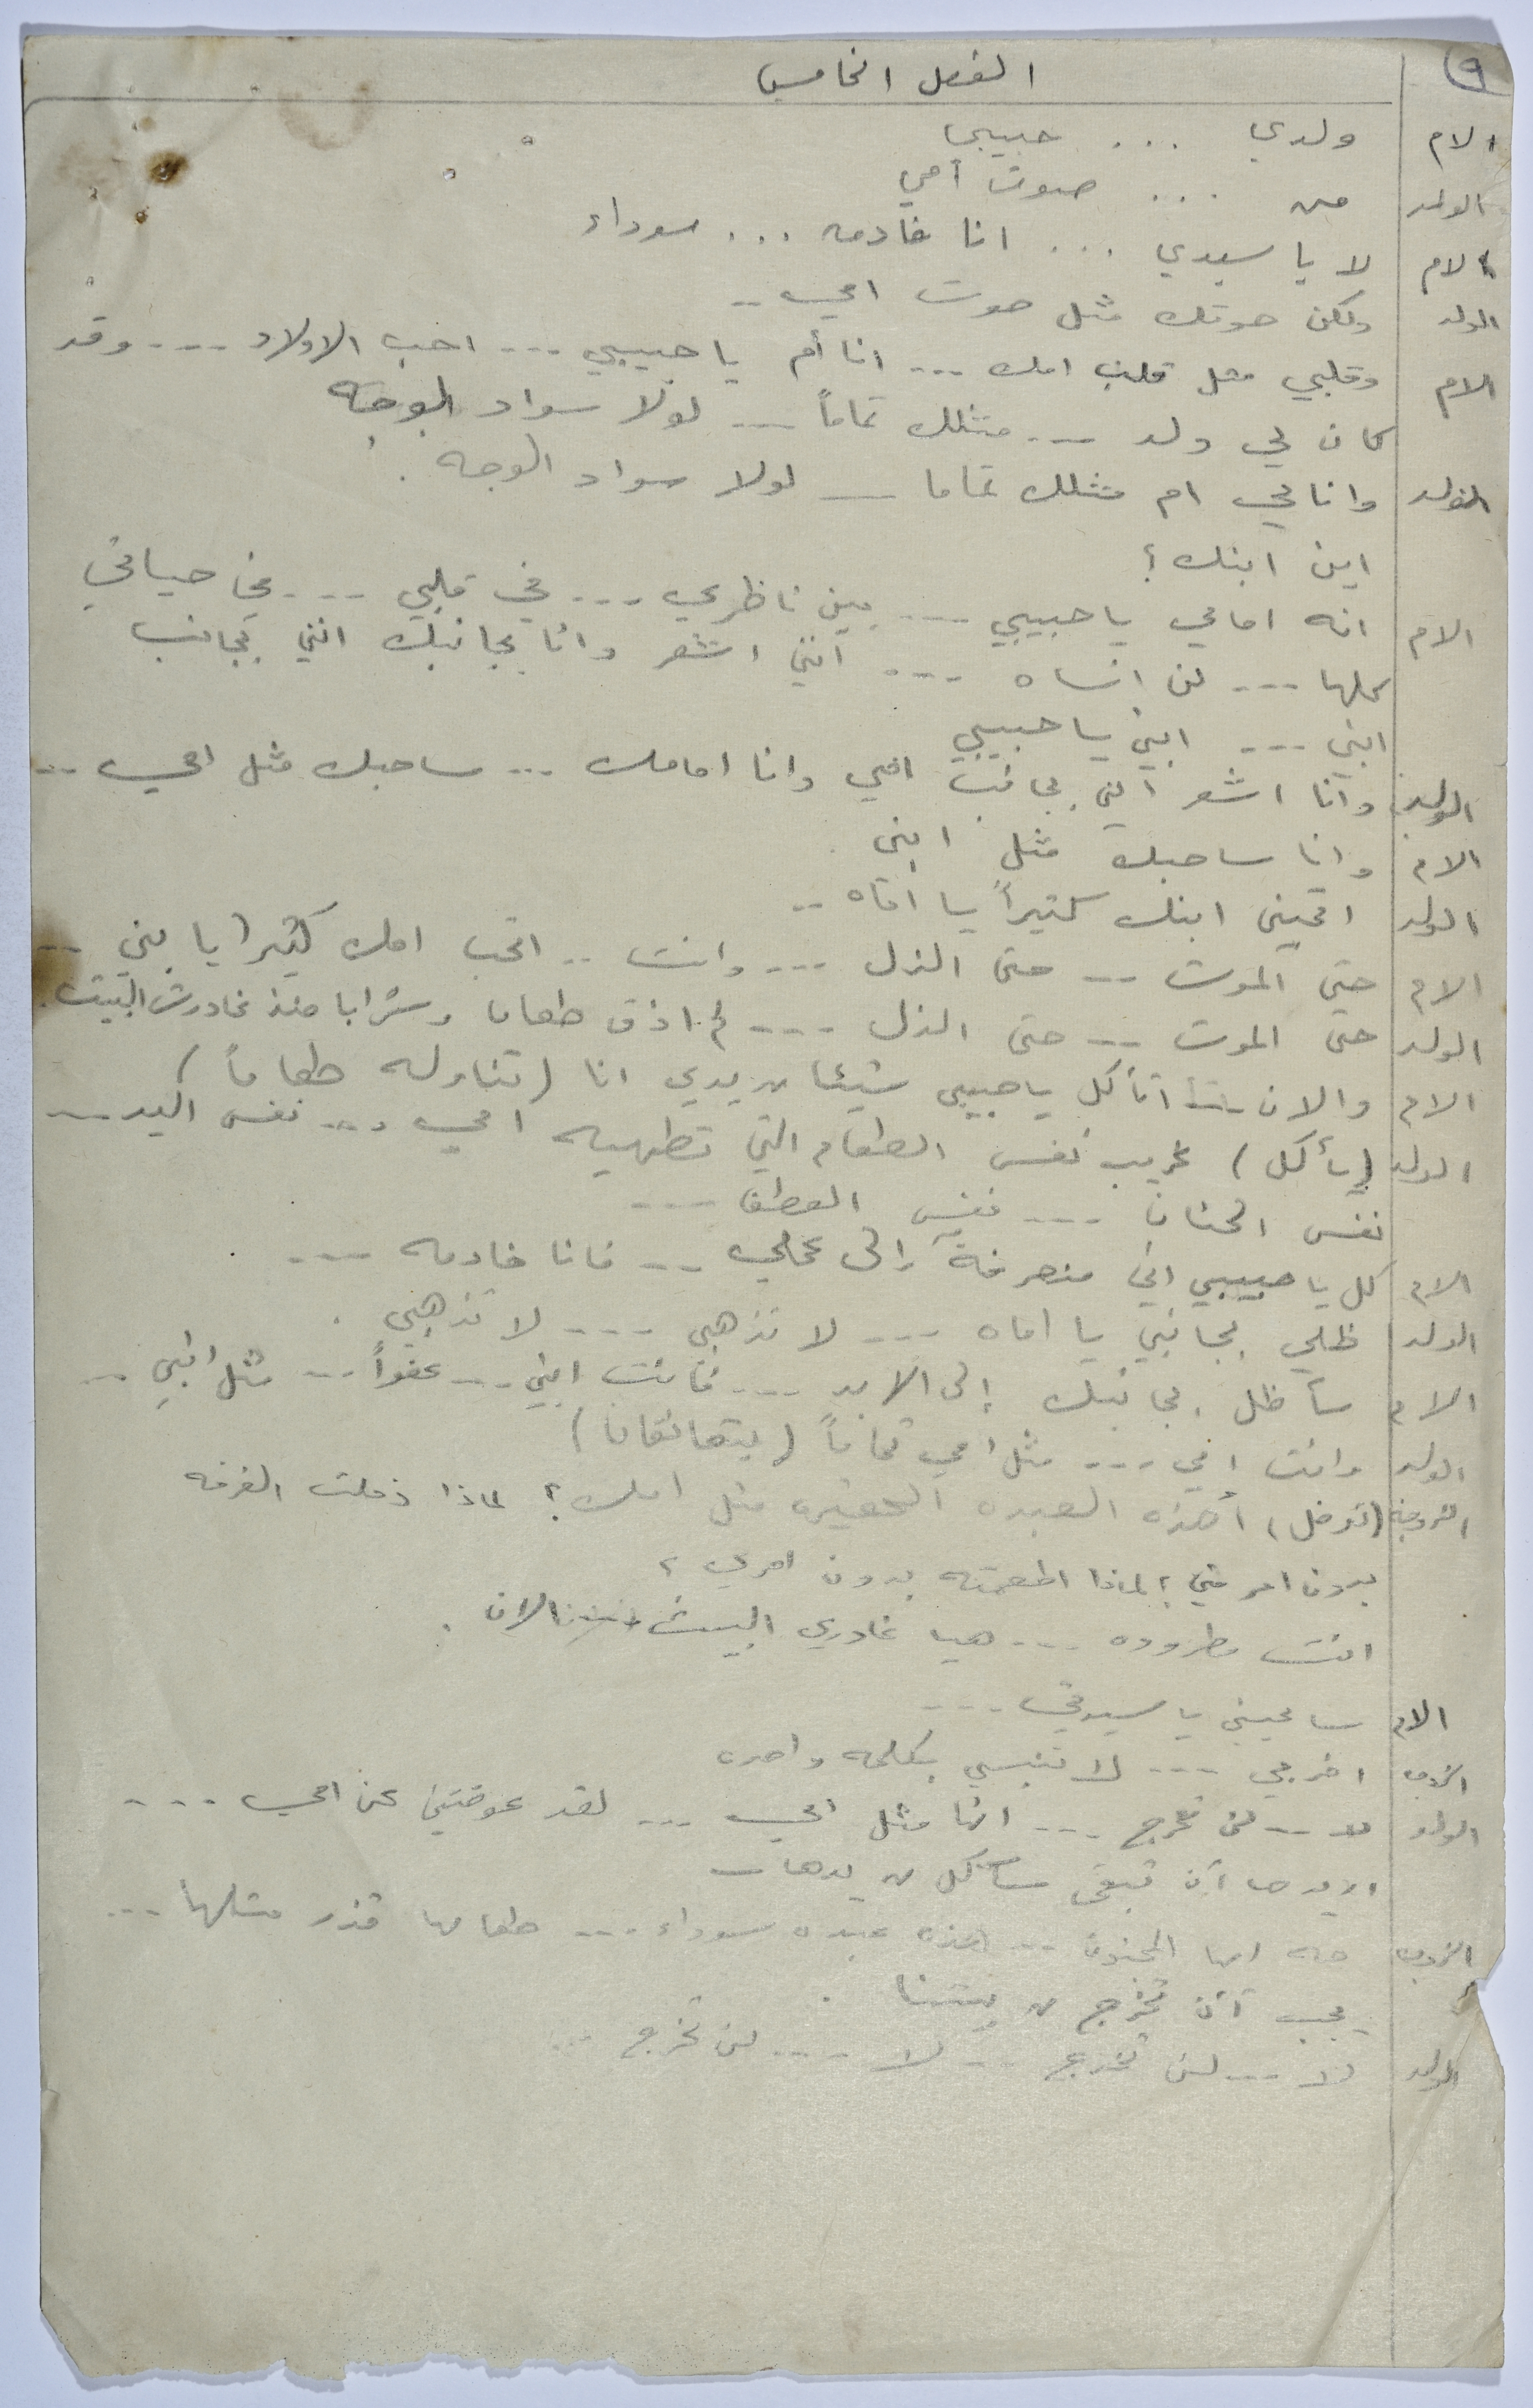 ٩
الفصل الخامس
الام ولدي ... حبيبي
الولد من ... صوت أمي
الام لا يا سيدي ... انا خادمه ... سوداء
الولد ولكن صوتك مثل صوت امي ..
الام وقلبي مثل قلب امك ... انا أم يا حبيبي ... احب الاولاد ... وقد
كان لي ولد ... مثلك تماماً ... لولا سواد الوجه
الولد وانا لي ام مثلك تماما ... لولا سواد الوجه .
اين ابنك ؟
الام انه امامي يا حبيبي ... بين ناظري ... في قلبي ... في حياتي
كلها ... لن انساه ... انني اشعر وانا بجانبك انني بجانب
ابني ... ابني يا حبيبي
الولد وانا اشعر انني بجانب امي وانا امامك ... ساحبك مثل امي ..
الام وانا ساحبك مثل ابني .
الولد اتحبين ابنك كثيراً يا اماه ..
الام حتى الموت .. حتى الذل ... وانت .. اتحب امك كثيرا يا بني ..
الولد حتى الموت .. حتى الذل ... لم اذق طعاما وشرابا منذ غادرت البيت .
الام والان اتأكل يا حبيبي شيئا من يدي انا (تناوله طعاماً)
الولد (يأكل) غريب نفس الطعام التي تطهيه امي ... نفس اليد ..
نفس الحنان ... نفس العطف ...
الام كل يا حبيبي اني منصرفة الى عملي .. فانا خادمه ...
الولد ظلي بجانبي يا اماه ... لا تذهبي ... لا تذهبي .
الام سأظل بجانبك إلى الابد ... فانت ابني .. عفواً .. مثل ابني ..
الولد وانت امي ... مثل امي تماماً (يتعانقان)
الزوجة (تدخل) أهذه العبده الحقيره مثل امك ؟ لماذا دخلت الغرفه
بدون امر مني ؟ لماذا اطعمته بدون امري ؟
انت مطروده ... هيا غادري البيت الان .
الام سامحيني يا سيدتي ...
الزوجه اخرجي ... لا تنبسي بكلمه واحده
الولد لا .. لن تخرج ... انها مثل امي ... لقد عوضتني عن امي ...
اريدها أن تبقى سآكل من يدها ..
الزوجه صه ايها المجنون .. هذه عبده سوداء ... طعامها قذر مثلها ...
يجب أن تخرج من بيتنا .
الولد لا ... لن تخرج .. لا ... لن تخرج ...